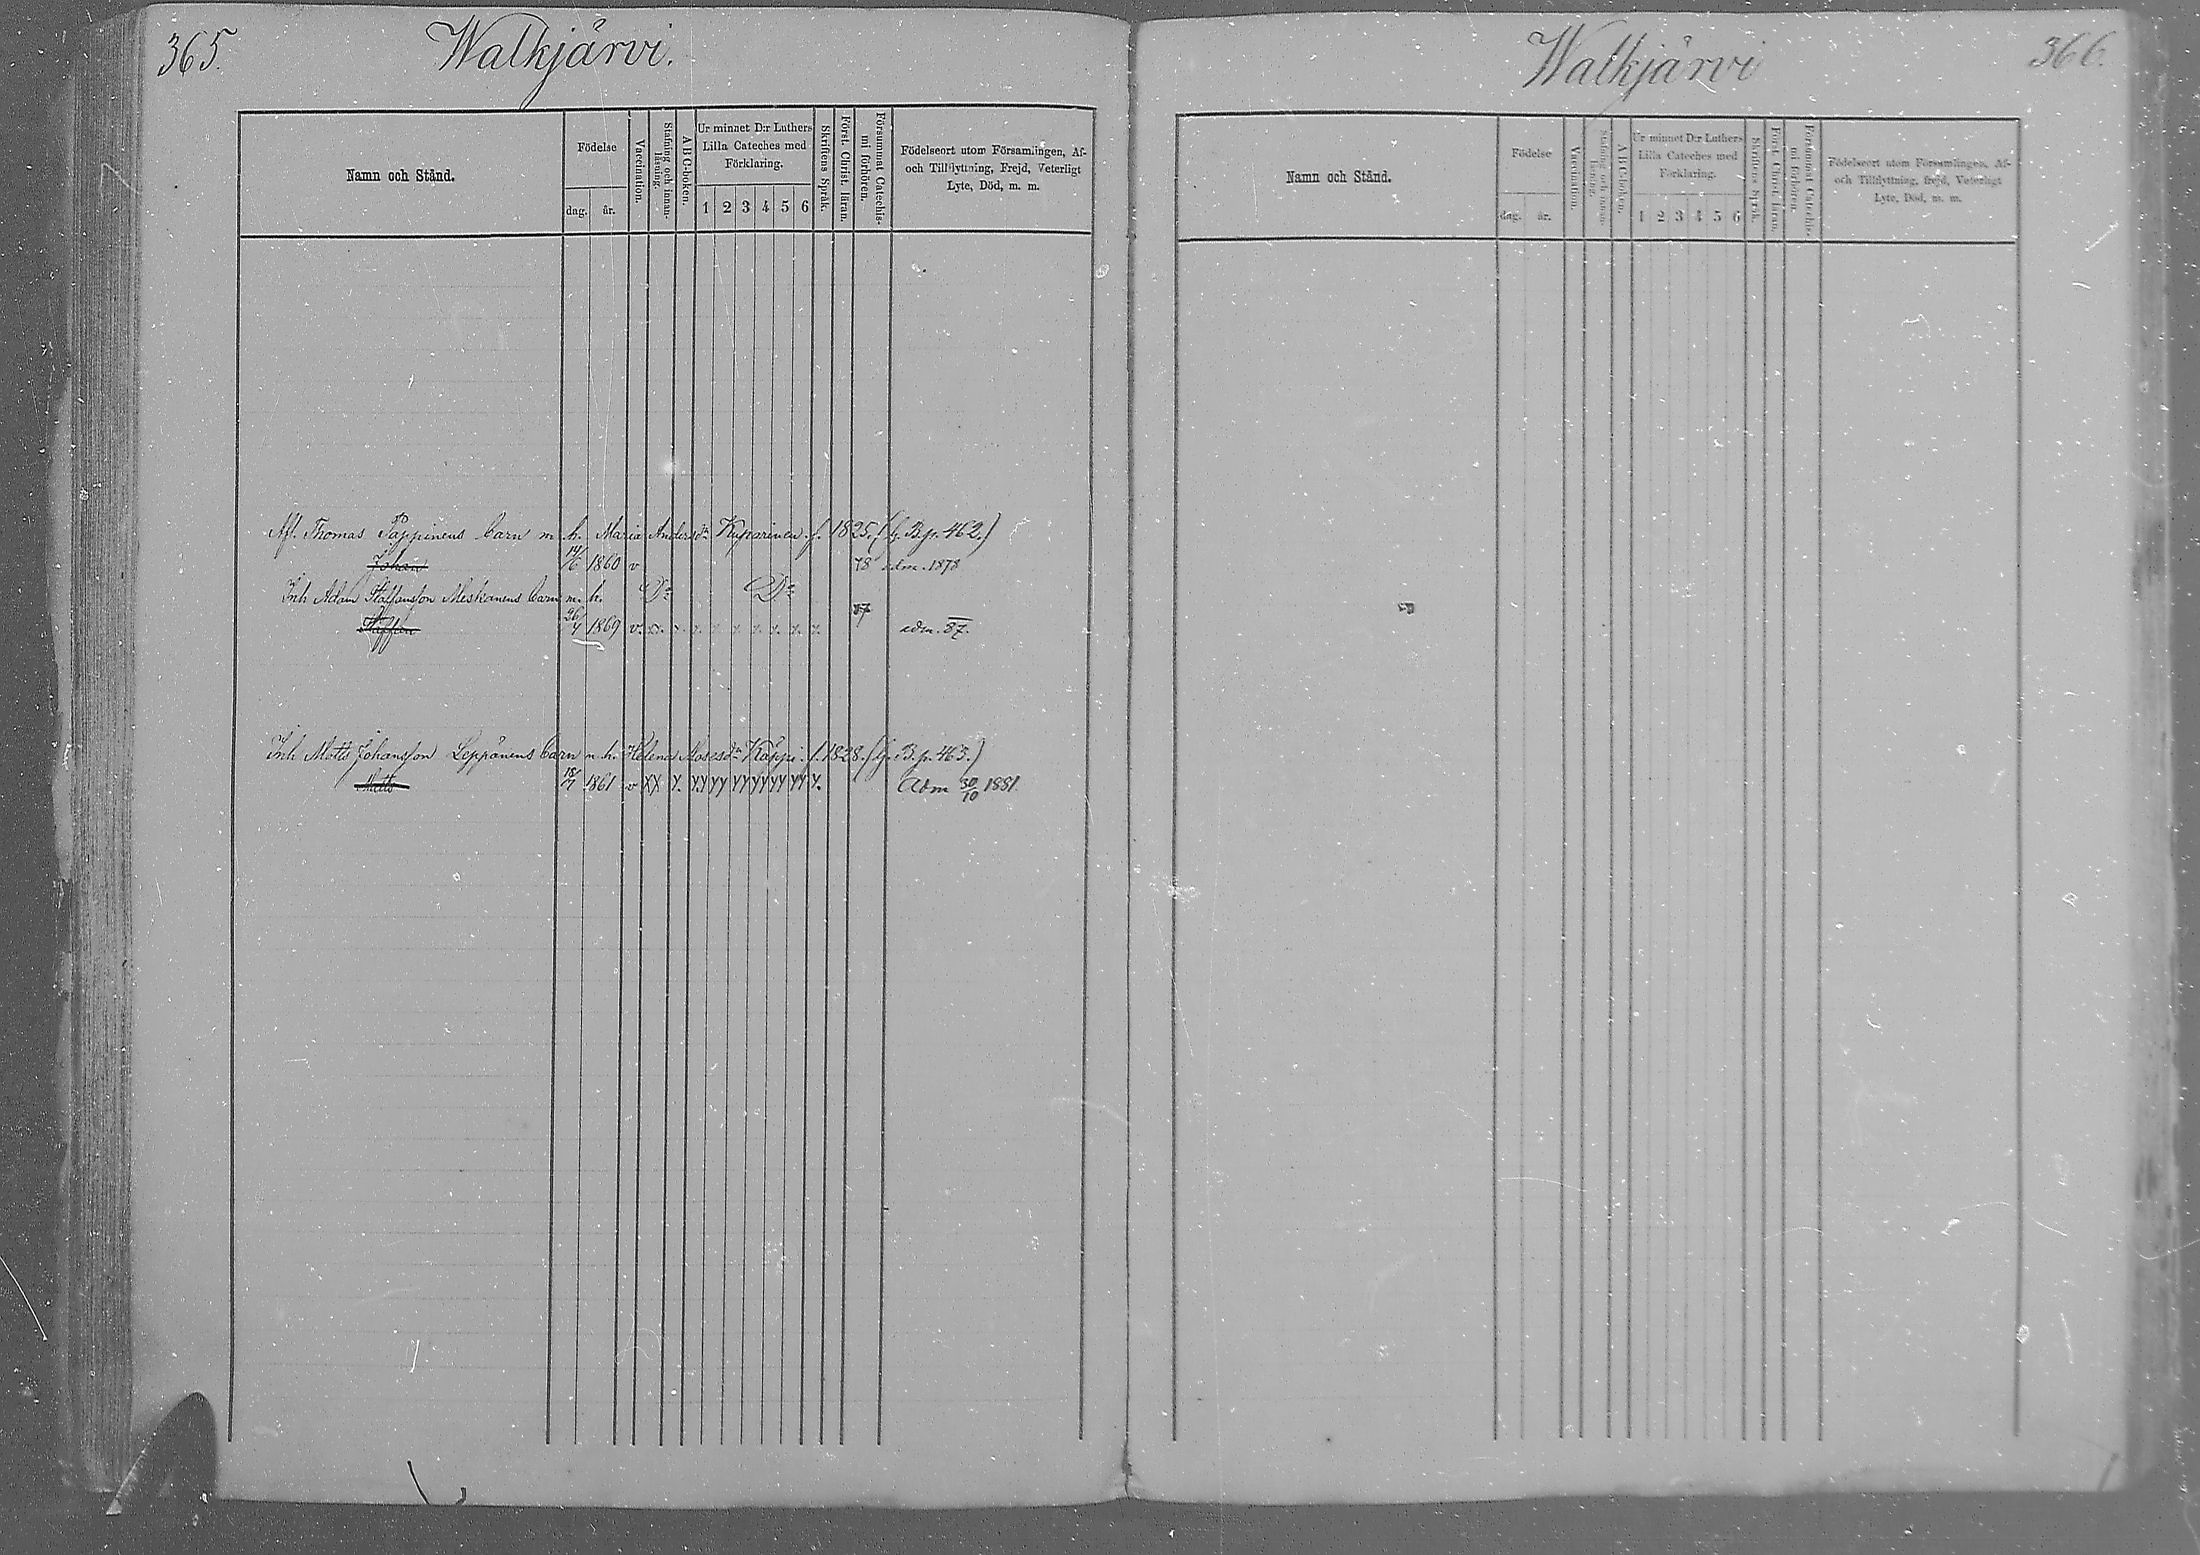 365.
Walkjärvi.
Namn och Stånd.
Födelse
dag.
år.
Vaccination.
Stafning och innan-
läsning.
A B C-boken.
Ur minnet D:r Luthers
Lilla Cateches med
Förklaring.
1 2 3 4 5 6
Skriftens Språk.
Först. Christ. läran.
Försummat Catechis-
mi förhören.
Födelseort utom Församlingen, Af-
och Tillflyttning, Frejd, Veterligt
Lyte, Död, m. m.
Afl. Thomas Pappinens barn m. h. Maria Andersdr Kuparinen f. 1825. (h. B. p. 462.)
Johan 14/6 1860 v 78 adm. 1878
Inh Adam Staffansson Meskanens barn m. h. Dr Dr
Staffan 26/4 1869 v. xx. x. x. x. x. x. x. x. x. 87 adm. 87.
Inh Matts Johansson Leppänens barn m. h. Helena Mosesdr Käppi f. 1828. (h. B. p. 463.)
Matts 18/7 1861 v XX Adm 30/10 1881
Walkjärvi
366.
Namn och Stånd.
Födelse
dag.
år.
Vaccination.
Stafning och innan-
läsning.
A B C-boken.
Ur minnet D:r Luthers
Lilla Cateches med
Förklaring.
1 2 3 4 5 6
Skriftens Språk.
Först. Christ. läran.
Försummat Catechis-
mi förhören.
Födelseort utom Församlingen, Af-
och Tillflyttning, frejd, Veterligt
Lyte, Död, m. m.